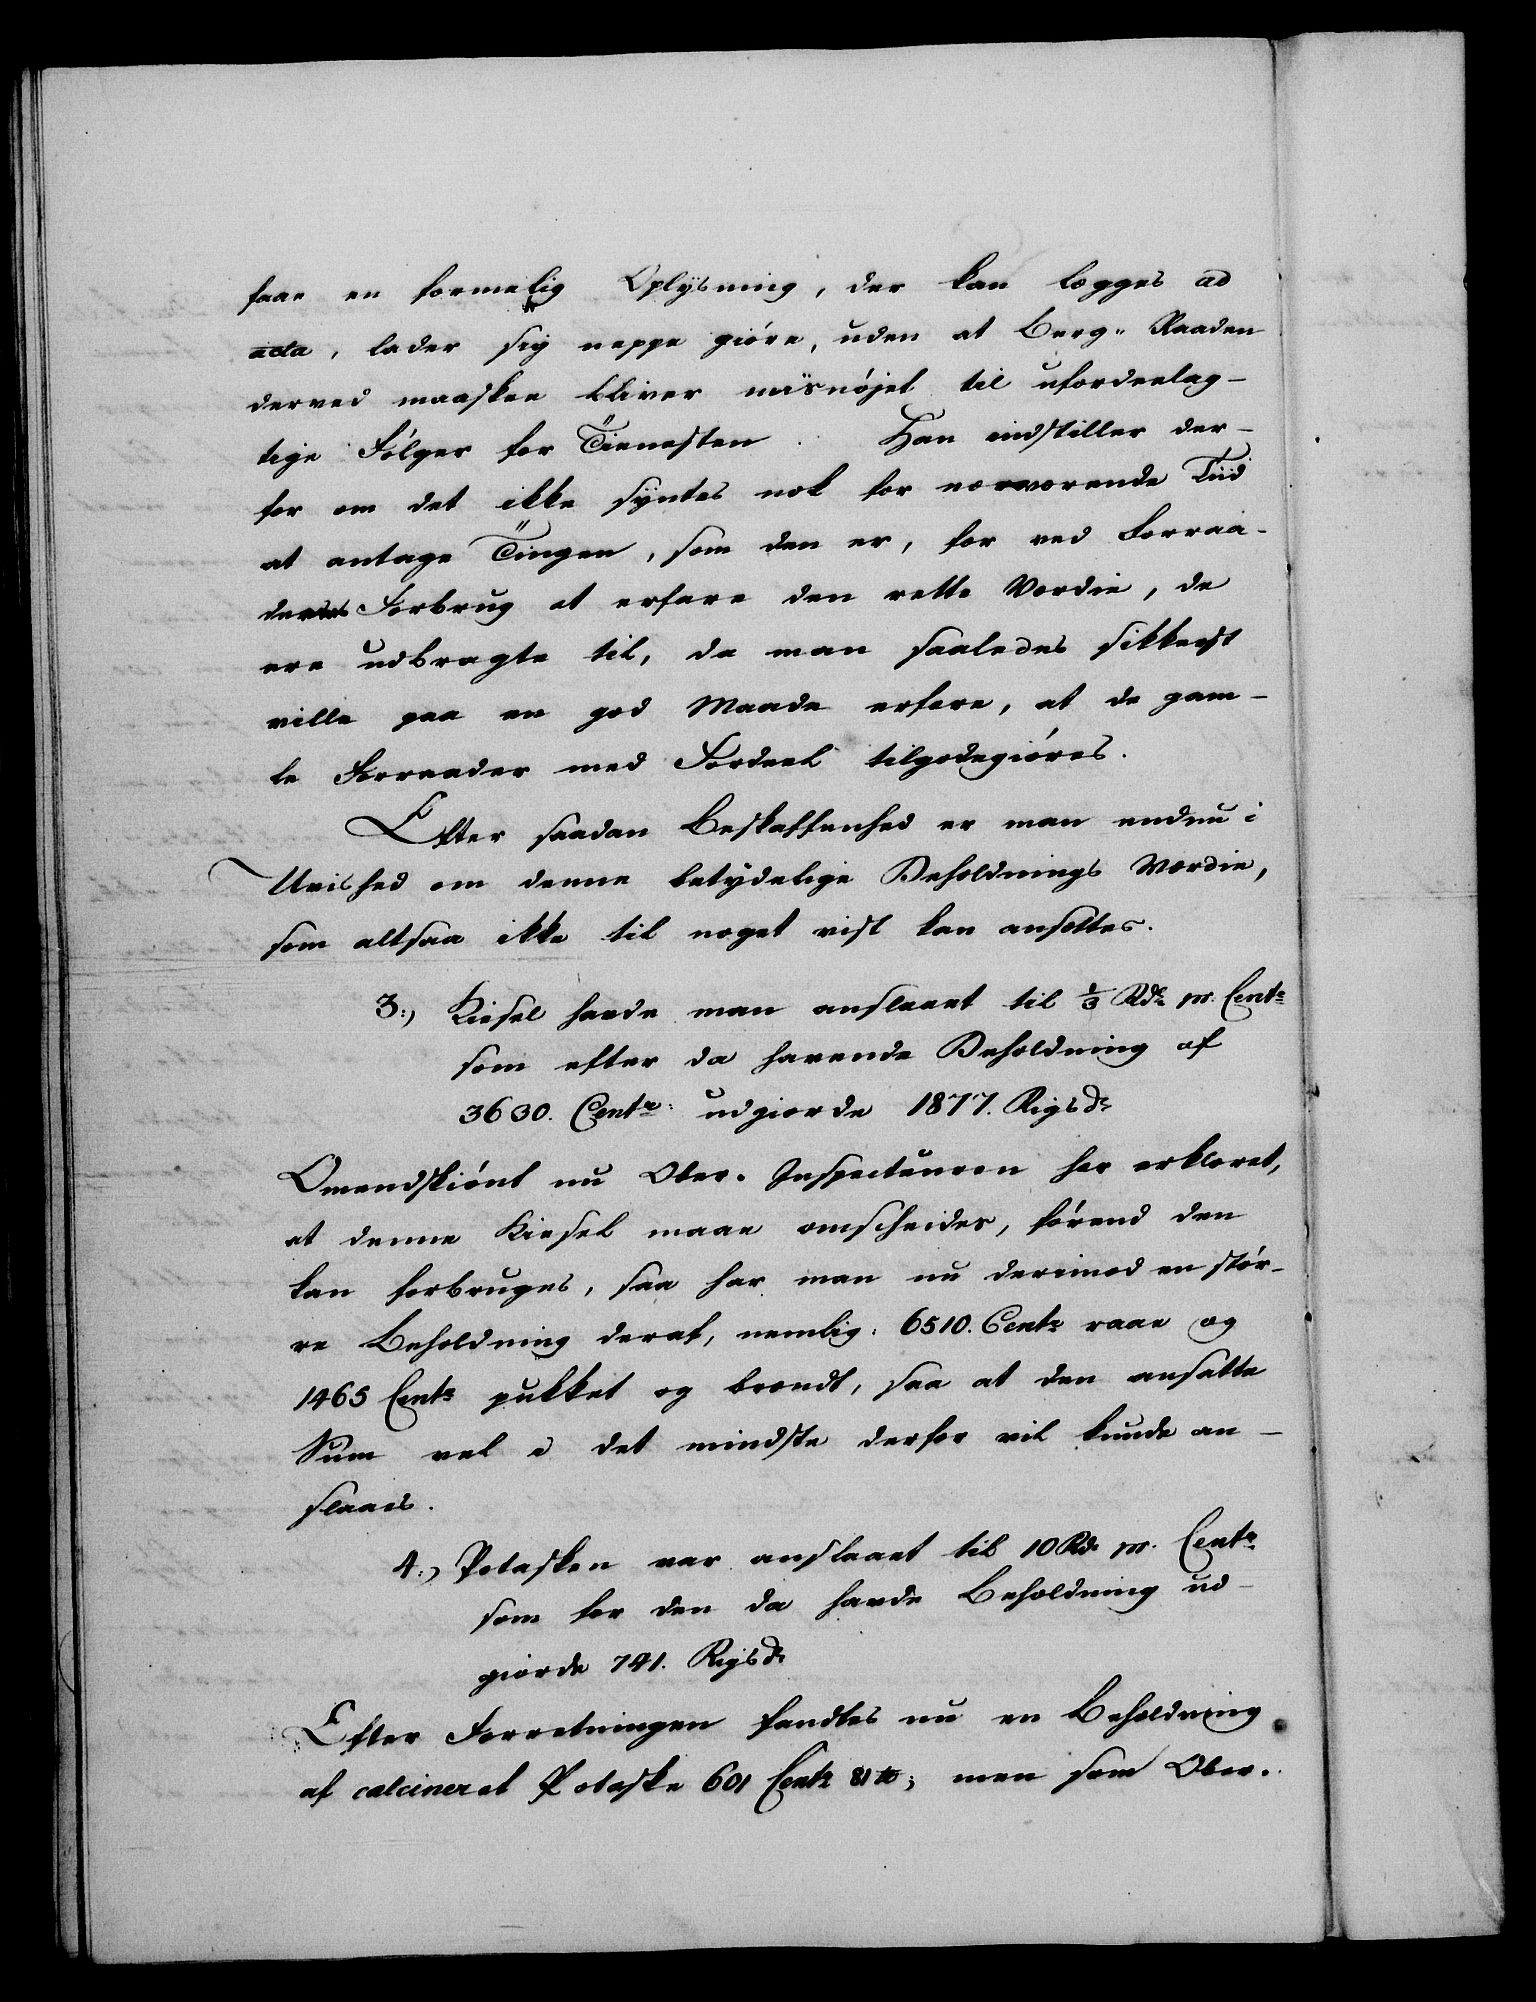 faae en formelig Oplysning, der kan lægges ad
acta, lader sig neppe giöre, uden at Berg- Raaden
derved maaskee bliver misnöjet til ufordeelag-
tige Fölger for Tienesten. Han indstiller der-
for om det ikke syntes nok for nærværende Tiid
at antage Tingen, som den er, for ved Forraa-
dernes Forbrug at erfare den rette Værdie, de
ere udbragte til, da man saaledes sikkerst
ville paa en god Maade erfare, at de gam-
le Forraader med Fordeel tilgodegiöres.
Efter saadan Beskaffenhed er man endnu i
Uvished om denne betydelige Beholdnings Værdie,
som altsaa ikke til noget vist kan ansættes.
3.) Kiesel havde man anslaaet til 1/3 Rdr pr. Centr
som efter da havende Beholdning af
3630. Centr udgiorde 1877. Rigsdr
Omendskiönt nu Ober- Inspecteuren har erklæret,
at denne Kiesel maae omscheides, förend den
kan forbruges, saa har man nu derimod en stör-
re Beholdning deraf, nemlig: 6510. Centr raae og
1465 Centr pukket og brændt, saa at den ansatte
Sum vel i det mindste derfor vil kunde an-
slaaes.
4.) Potasken var anslaaet til 10 Rdr pr. Centr
som for den da havde Beholdning ud-
giorde 741. Rigsdr
Efter Forretningen fandtes nu en Beholdning
af calcineret Potaske 601 Centr 81 ℔; men som Ober-